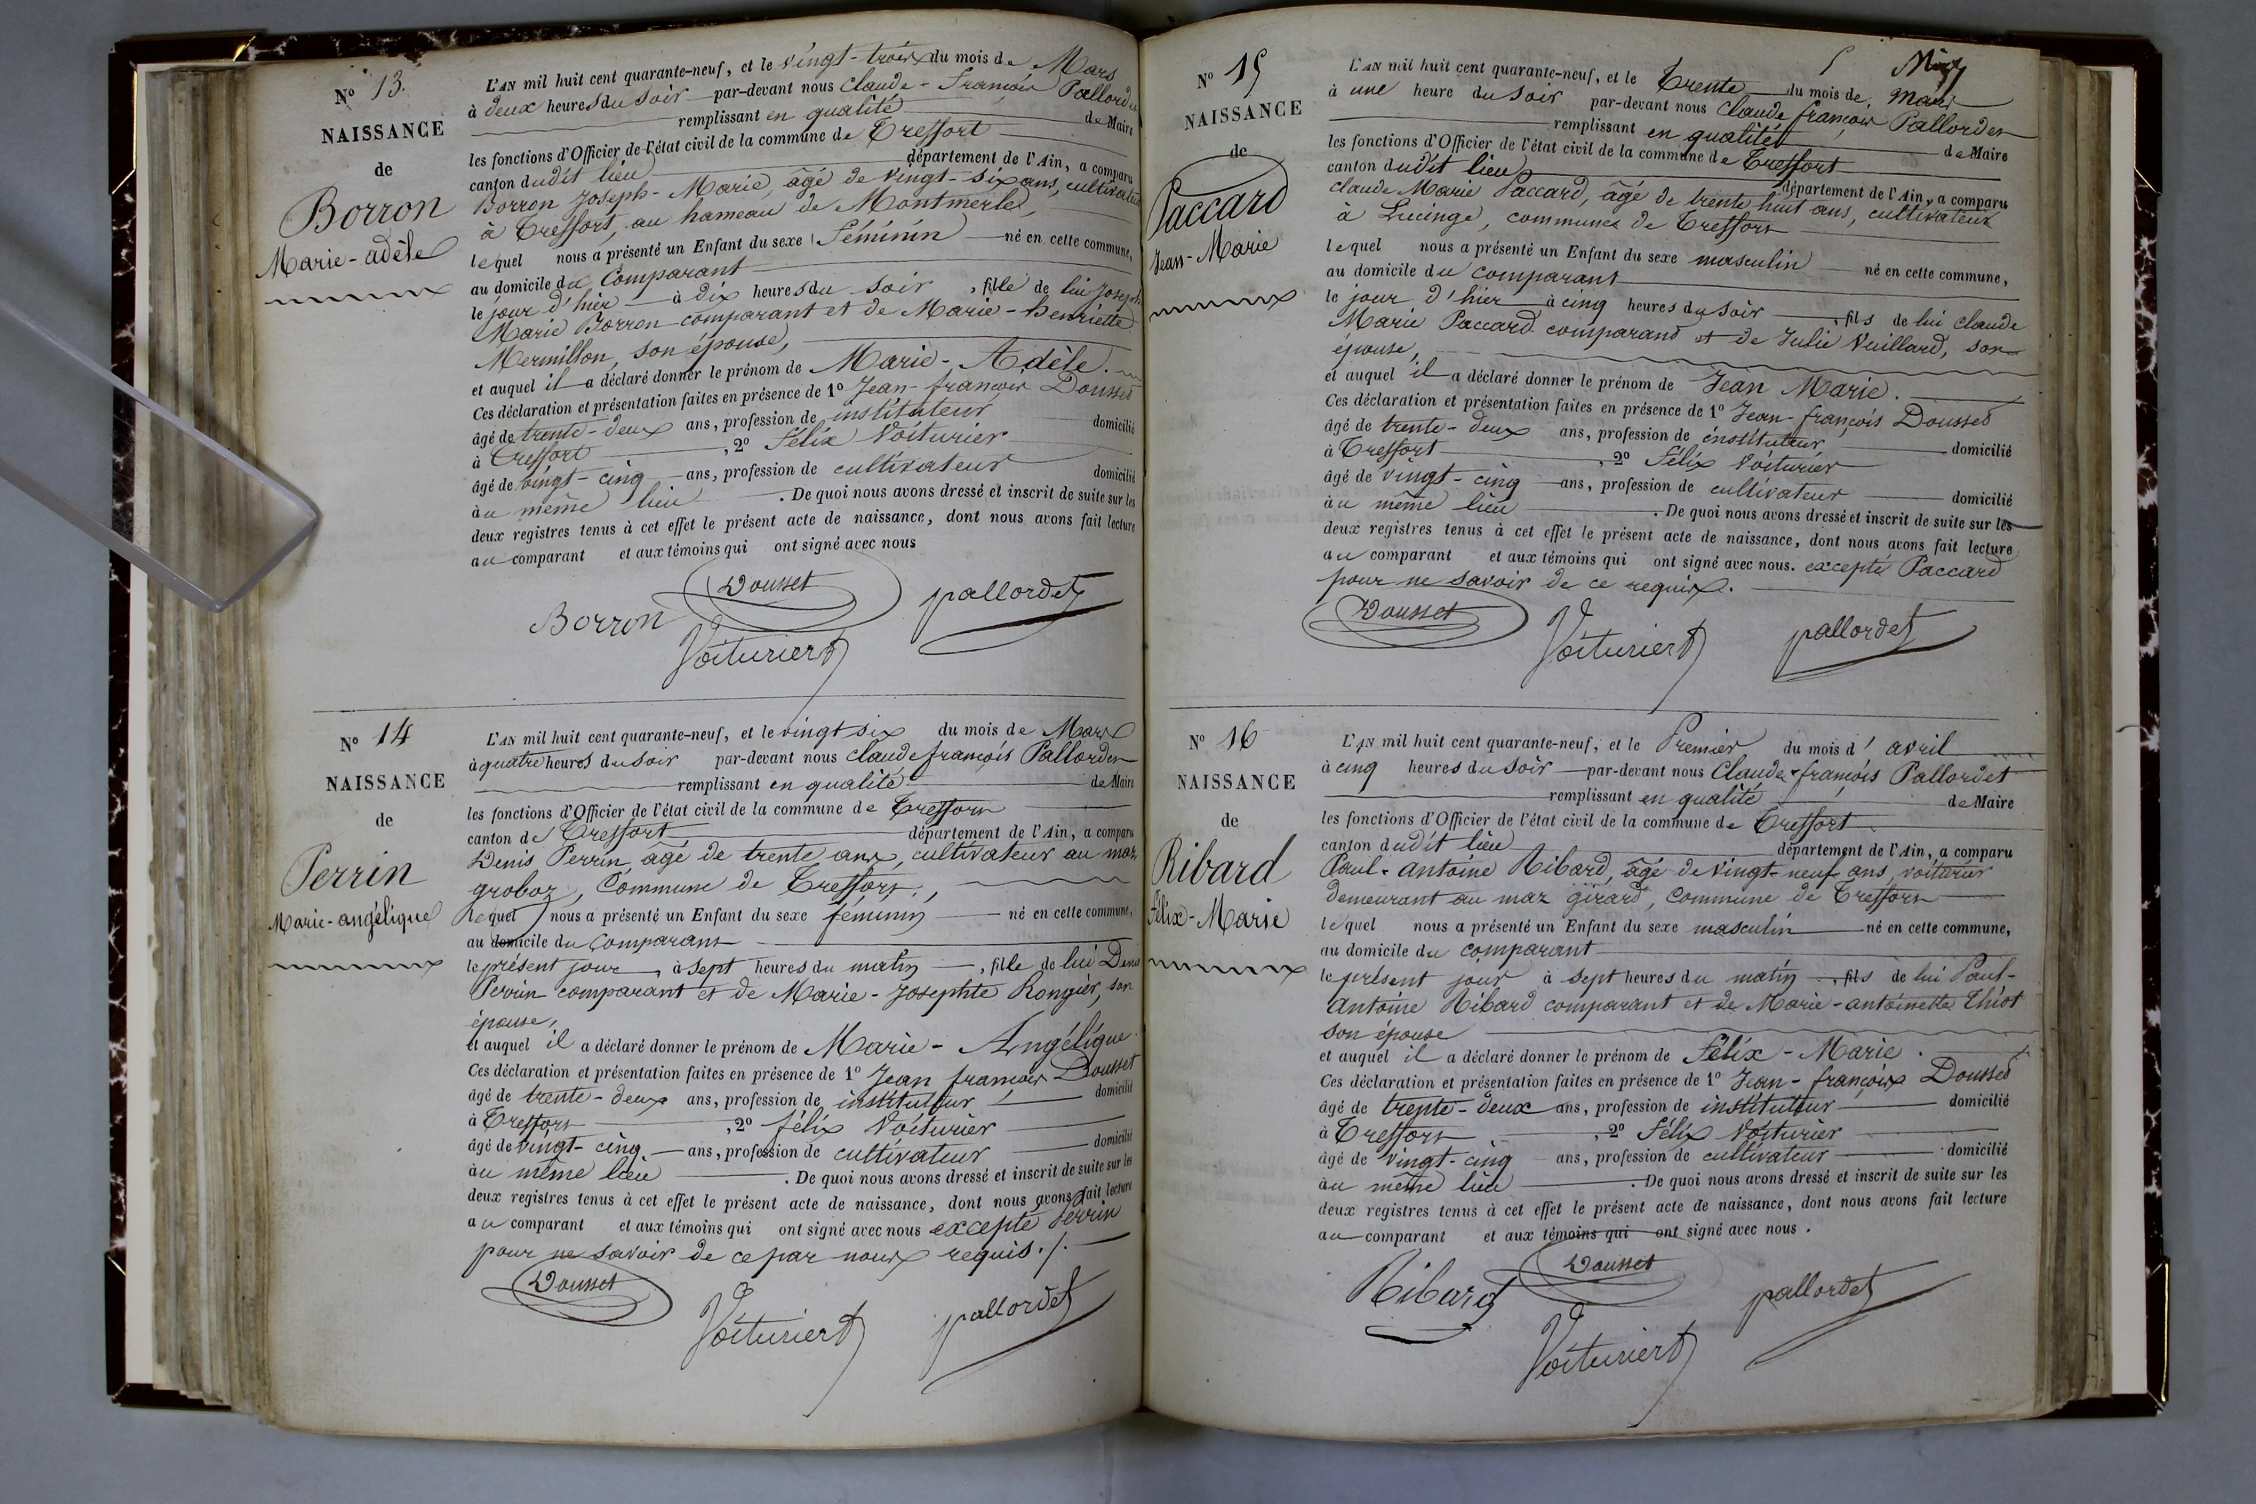 N° 13.
NAISSANCE
de
Borron
Marie-adèle
L'AN mil huit cent quarante-neuf, et le vingt-trois du mois de Mars
à deux heures du soir par-devant nous Claude-François Pallordet
remplissant en qualité de Maire
les fonctions d'Officier de l'état civil de la commune de Treffort
canton dudit lieu département de l'Ain, a comparu
Borron Joseph-Marie, âgé de vingt-six ans, cultivateur
à Treffort, au hameau de Montmerle,
lequel nous a présenté un Enfant du sexe féminin né en cette commune,
au domicile du Comparant
le jour d'hier à dix heures du soir, fille de lui Joseph
Marie Borron comparant et de Marie-henriette
Mermillon, son épouse,
et auquel il a déclaré donner le prénom de Marie-Adèle.
Ces déclaration et présentation faites en présence de 1° Jean-françois Dousset
âgé de trente-deux ans, profession de instituteur domicilié
à Treffort, 2° Félix Voiturier
âgé de vingt-cinq ans, profession de cultivateur domicilié
au même lieu. De quoi nous avons dressé et inscrit de suite sur les
deux registres tenus à cet effet le présent acte de naissance, dont nous avons fait lecture
au comparant et aux témoins qui ont signé avec nous
Dousset
Borron pallordet
Voituriert
N° 14
NAISSANCE
de
Perrin
Marie-angélique
L'AN mil huit cent quarante-neuf, et le vingt six du mois de Mars
à quatre heures du soir par-devant nous claude françois Pallordet
remplissant en qualité de Maire
les fonctions d'Officier de l'état civil de la commune de Treffort
canton de Treffort département de l'Ain, a comparu
Denis Perrin, âgé de trente ans, cultivateur au maz
groboz, Commune de Treffort,
lequel nous a présenté un Enfant du sexe féminin né en cette commune,
au domicile du Comparant
le présent jour, à sept heures du matin, fille de lui Denis
Perrin comparant et de Marie-Josephte Rongier, son
épouse,
et auquel il a déclaré donner le prénom de Marie-Angélique
Ces déclaration et présentation faites en présence de 1° Jean françois Dousset
âgé de trente-deux ans, profession de instituteur domicilié
à Treffort, 2° félix Voiturier
âgé de vingt-cinq ans, profession de cultivateur domicilié
au même lieu. De quoi nous avons dressé et inscrit de suite sur les
deux registres tenus à cet effet le présent acte de naissance, dont nous avons fait lecture
au comparant et aux témoins qui ont signé avec nous excepté Perrin
pour ne savoir de ce par nous requis./.
Dousset
Voituriert pallordet
N° 15
NAISSANCE
de
Paccard
Jean-Marie
L'AN mil huit cent quarante-neuf, et le Trente du mois de mars
à une heure du soir par-devant nous Claude françois Pallordet
remplissant en qualité de Maire
les fonctions d'Officier de l'état civil de la commune de Treffort
canton dudit lieu département de l'Ain, a comparu
claude Marie Paccard, âgé de trente huit ans, cultivateur
à Lucinge, commune de Treffort
lequel nous a présenté un Enfant du sexe masculin né en cette commune,
au domicile du comparant
le jour d'hier à cinq heures du soir, fils de lui claude
Marie Paccard comparant et de Julie Vuillard, son
épouse,
et auquel il a déclaré donner le prénom de Jean Marie.
Ces déclaration et présentation faites en présence de 1° Jean-françois Dousset
âgé de trente-deux ans, profession de instituteur domicilié
à Treffort, 2° Félix Voiturier
âgé de vingt-cinq ans, profession de cultivateur domicilié
au même lieu. De quoi nous avons dressé et inscrit de suite sur les
deux registres tenus à cet effet le présent acte de naissance, dont nous avons fait lecture
au comparant et aux témoins qui ont signé avec nous. excepté Paccard
pour ne savoir de ce requis.
Dousset
Voituriert pallordet
N° 16
NAISSANCE
de
Ribard
Félix-Marie
L'AN mil huit cent quarante-neuf, et le Premier du mois d'avril
à cinq heures du soir par-devant nous Claude-françois Pallordet
remplissant en qualité de Maire
les fonctions d'Officier de l'état civil de la commune de Treffort
canton dudit lieu département de l'Ain, a comparu
Paul-antoine Ribard, âgé de vingt-neuf ans, voiturier
demeurant au maz girard, commune de Treffort
lequel nous a présenté un Enfant du sexe masculin né en cette commune,
au domicile du comparant
le présent jour à sept heures du matin, fils de lui Paul-
Antoine Ribard comparant et de Marie-antoinette Thiot
son épouse
et auquel il a déclaré donner le prénom de Félix-Marie.
Ces déclaration et présentation faites en présence de 1° Jean-françois Dousset
âgé de trente-deux ans, profession de instituteur domicilié
à Treffort, 2° Félix Voiturier
âgé de vingt-cinq ans, profession de cultivateur domicilié
au même lieu. De quoi nous avons dressé et inscrit de suite sur les
deux registres tenus à cet effet le présent acte de naissance, dont nous avons fait lecture
au comparant et aux témoins qui ont signé avec nous.
Dousset
Ribard pallordet
Voituriert